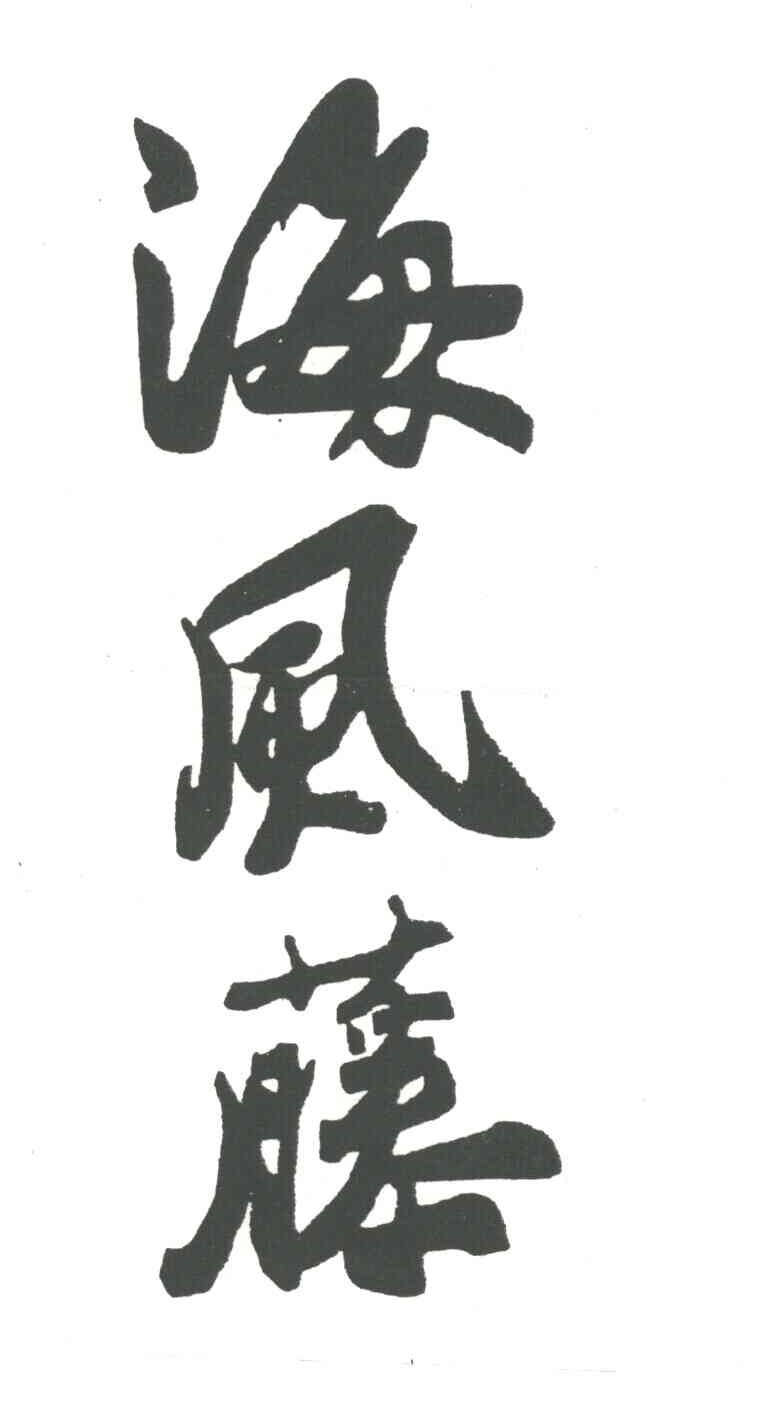 海風藤